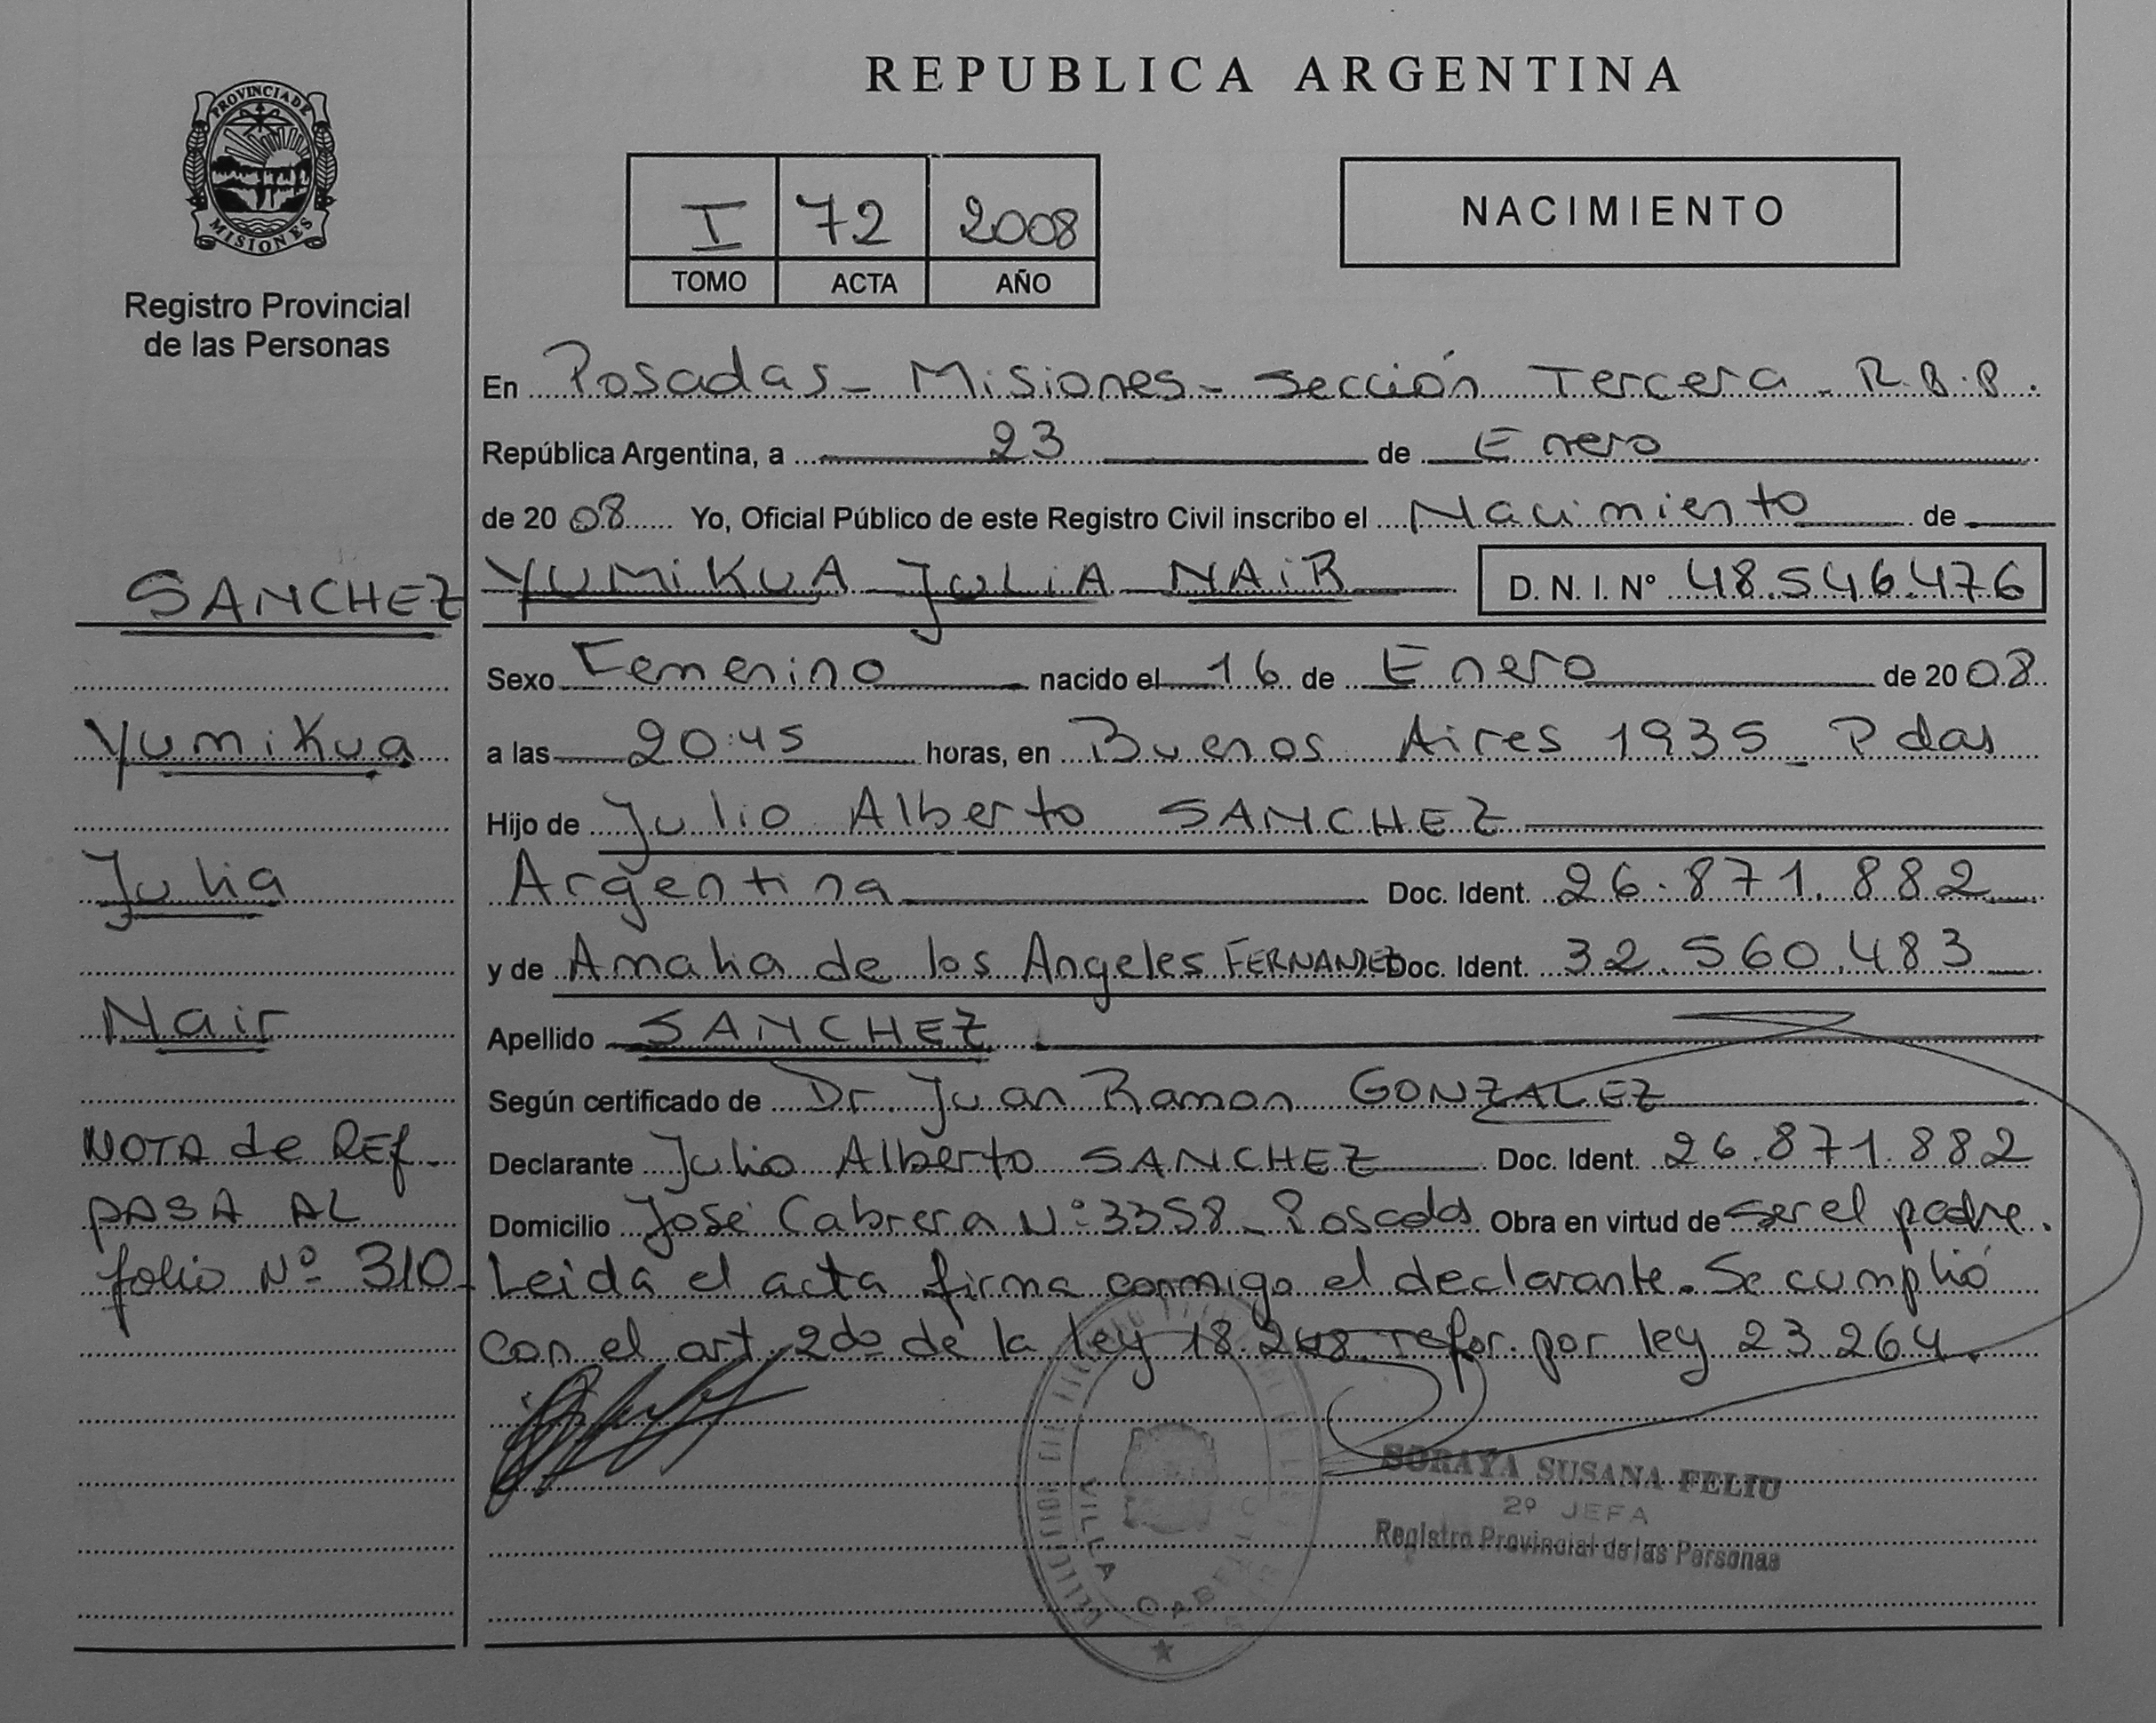 REPUBLICA ARGENTINA
PROVINCIA DE
MISIONES
Registro Provincial
de las Personas
I 72 2008
TOMO ACTA AÑO
NACIMIENTO
En Posadas - Misiones - Sección Tercera - R.P.P.
República Argentina, a 23 de Enero
de 2008 Yo, Oficial Público de este Registro Civil inscribo el Nacimiento de
SANCHEZ YUMiKUA JULiA NAiR D. N. I. Nº 48.546.476
Sexo Femenino nacido el 16 de Enero de 2008
Yumikua a las 20:45 horas, en Buenos Aires 1935 - Pdas
Hijo de Julio Alberto SANCHEZ
Julia Argentina Doc. Ident. 26.871.882
y de Amalia de los Angeles FERNANDEZ Doc. Ident. 32.560.483
Nair Apellido SANCHEZ
Según certificado de Dr. Juan Ramon GONZALEZ
NOTA de REF. Declarante Julio Alberto SANCHEZ Doc. Ident. 26.871.882
PASA AL Domicilio José Cabrera Nº 3358 - Posadas Obra en virtud de ser el padre.
folio Nº 310 - Leida el acta firma conmigo el declarante. Se cumplió
con el art. 2do de la ley 18.248 refor. por ley 23.264.
SORAYA SUSANA FELIU
2º JEFA
Registro Provincial de las Personas
VILLA CABELLO